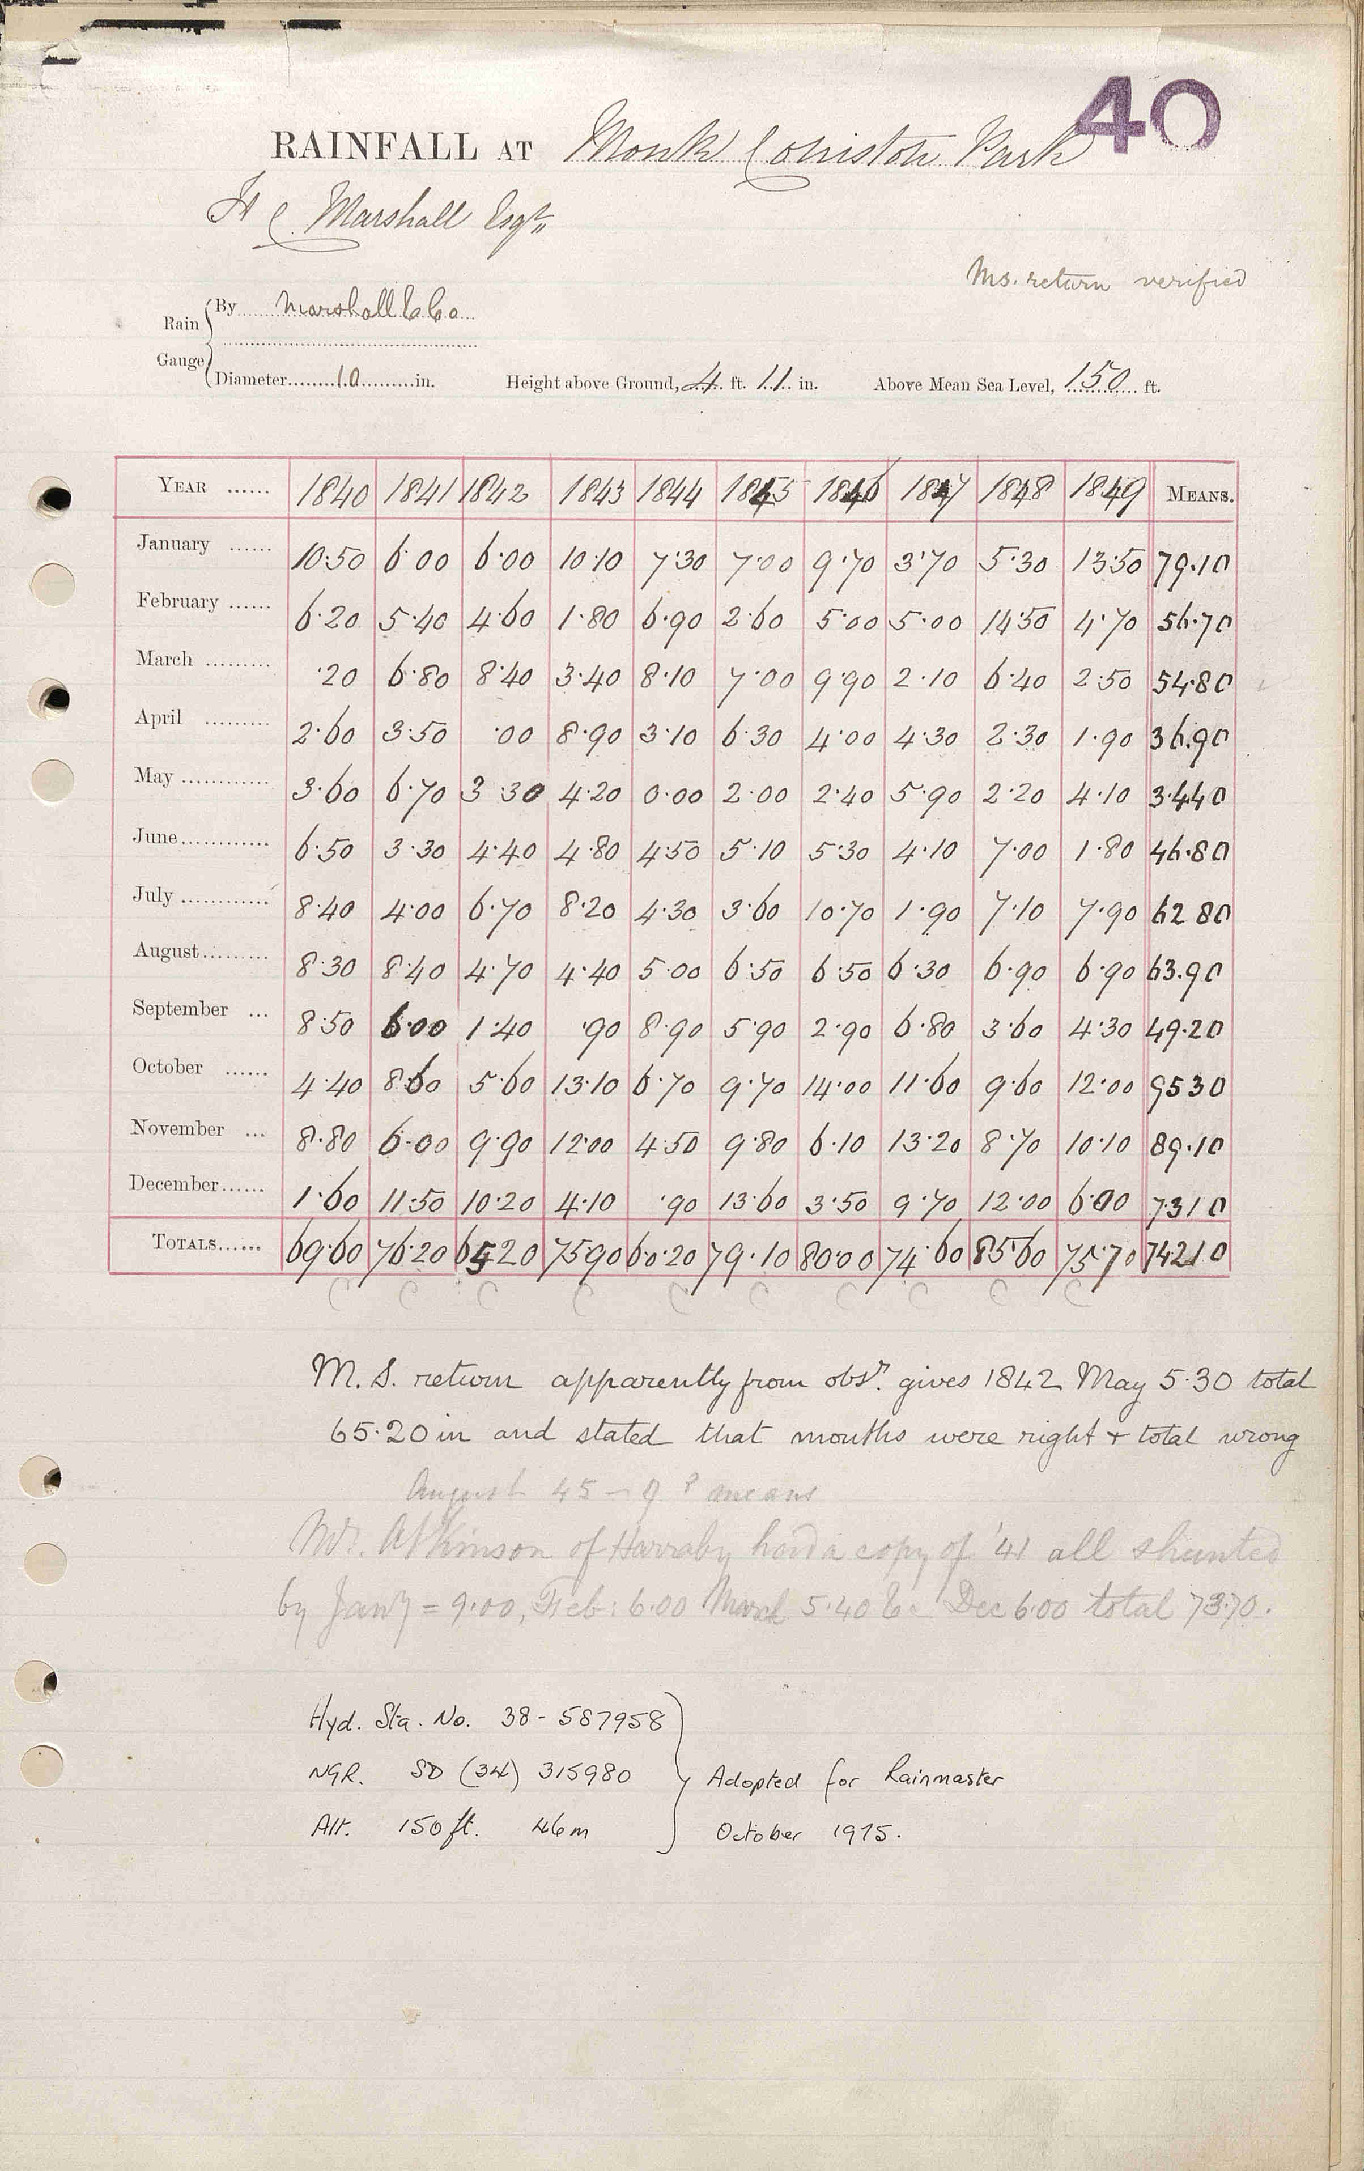 40
RAINFALL AT Monk Coniston Park
H C Marshall Esqr
Ms. return verified
Rain Gauge
By Marshall & Co
Diameter 10 in. Height above Ground, 4 ft. 11 in. Above Mean Sea Level, 150 ft.
YEAR 1840 1841 1842 1843 1844 1845 1846 1847 1848 1849 MEANS.
January 10.50 6.00 6.00 10.10 7.30 7.00 9.70 3.70 5.30 13.50 79.10
February 6.20 5.40 4.60 1.80 6.90 2.60 5.00 5.00 14.50 4.70 56.70
March .20 6.80 8.40 3.40 8.10 7.00 9.90 2.10 6.40 2.50 54.80
April 2.60 3.50 .00 8.90 3.10 6.30 4.00 4.30 2.30 1.90 36.90
May 3.60 6.70 3 30 4.20 0.00 2.00 2.40 5.90 2.20 4.10 34.40
June 6.50 3.30 4.40 4.80 4.50 5.10 5.30 4.10 7.00 1.80 46.80
July 8.40 4.00 6.70 8.20 4.30 3.60 10.70 1.90 7.10 7.90 62 80
August 8.30 8.40 4.70 4.40 5.00 6.50 6.50 6.30 6.90 6.90 63.90
September 8.50 6.00 1.40 .90 8.90 5.90 2.90 6.80 3.60 4.30 49.20
October 4.40 8.60 5.60 13.10 6.70 9.70 14.00 11.60 9.60 12.00 95 30
November 8.80 6.00 9.90 12.00 4.50 9.80 6.10 13.20 8.70 10.10 89.10
December 1.60 11.50 10.20 4.10 .90 13.60 3.50 9.70 12.00 6.00 73 10
TOTALS 69.60 76.20 65 20 75 90 60.20 79.10 80.00 74.60 85 60 75.70 742 10
M. S. return apparently from obsr. gives 1842 May 5.30 total
65.20 in and stated that months were right + total wrong
August 45 - 9 ? means
Mr. Atkinson of Harraby had a copy of '41 all shunted
by Jany = 9.00, Feb: 6.00 March 5.40 &c Dec 6.00 total 73.70.
Hyd. Sta. No. 38 - 587958
NGR. SD (34) 315980 Adopted for Rainmaster
Alt. 150 ft. 46 m October 1975.